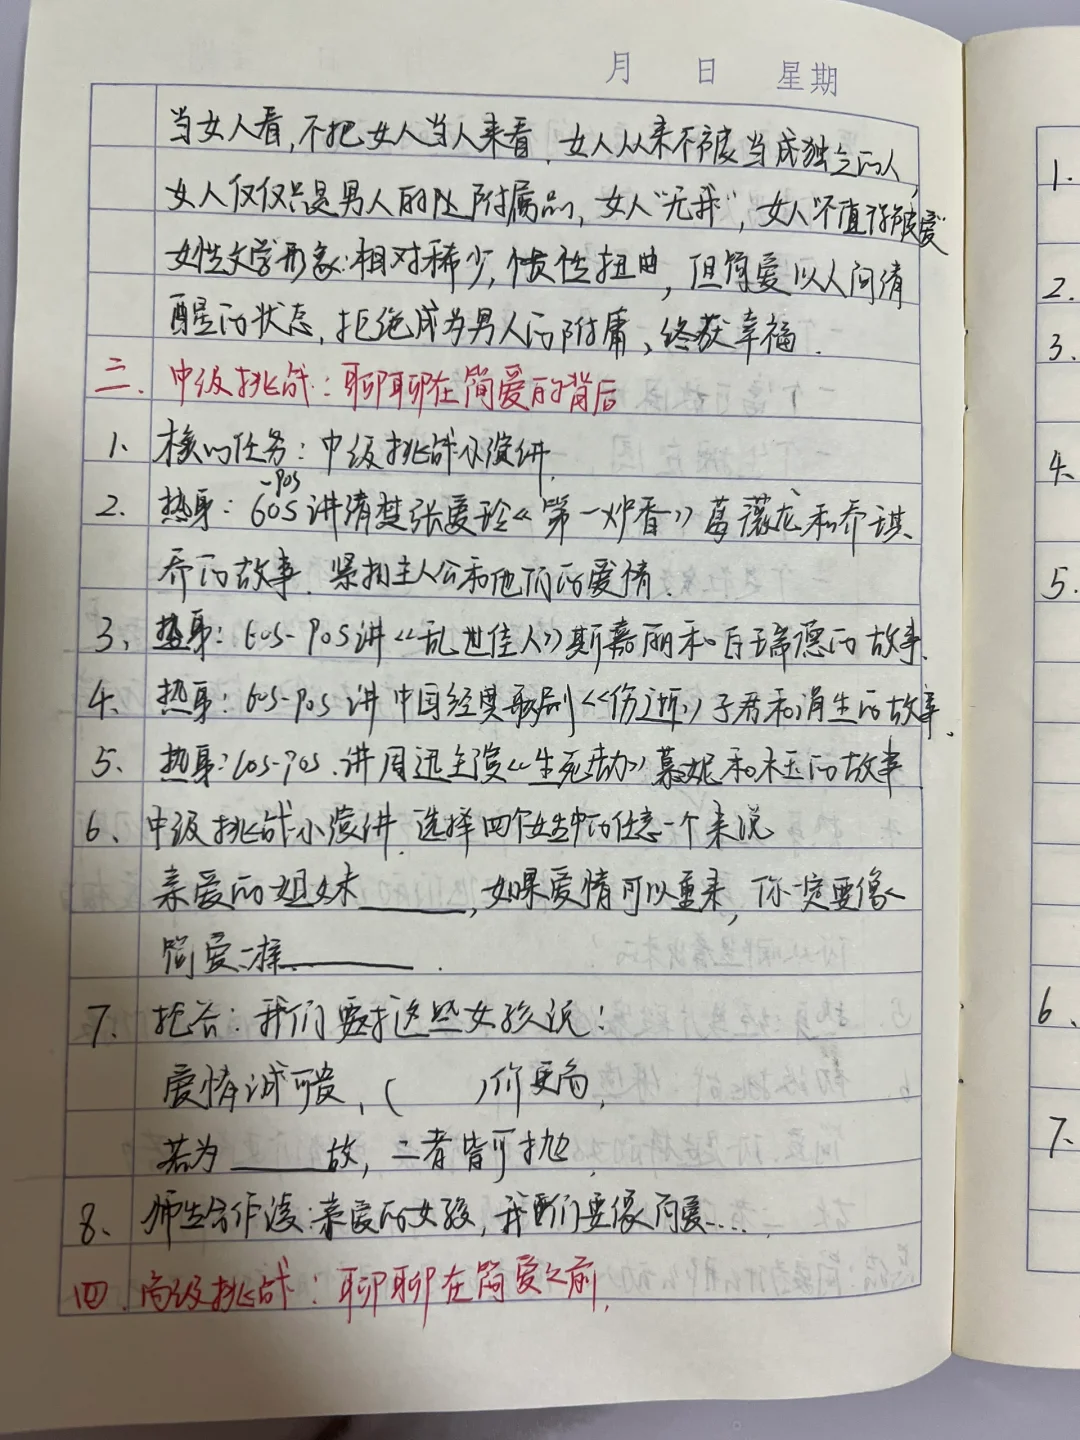 月 日 星期
当女人看,不把女人当人来看.女人从来不被当成独立的人,
女人仅仅只是男人的附属品,女人“无我”,女人“不值得被爱
女性文学形象:相对稀少,惯性扭曲,但简爱以人间清
醒的状态,拒绝成为男人的附庸,终获幸福.
三.中级挑战:聊聊在简爱的背后
1、核心任务:中级挑战小演讲.
-90s
2、热身:60s讲清楚张爱玲《第一炉香》葛薇龙和乔琪
乔的故事.紧扣主人公和他们的爱情.
3、热身:60s-90s讲《乱世佳人》斯嘉丽和白瑞德的故事.
4、热身:60s-90s讲中国经典歌剧《伤逝》子君和涓生的故事.
5、热身:60s-90s.讲周迅主演《生死劫》慕妮和木玉的故事
6、中级挑战小演讲.选择四个女生中的任意一个来说
亲爱的姐妹______,如果爱情可以重来,你一定要像
简爱一样______.
7、抢答:我们要对这些女孩说:
爱情诚可贵,( )价更高,
若为______故,二者皆可抛.
8、师生合作读:亲爱的女孩,我们要像简爱....
四.高级挑战:聊聊在简爱之前.
1.
2.
3.
4.
5.
6.
7.